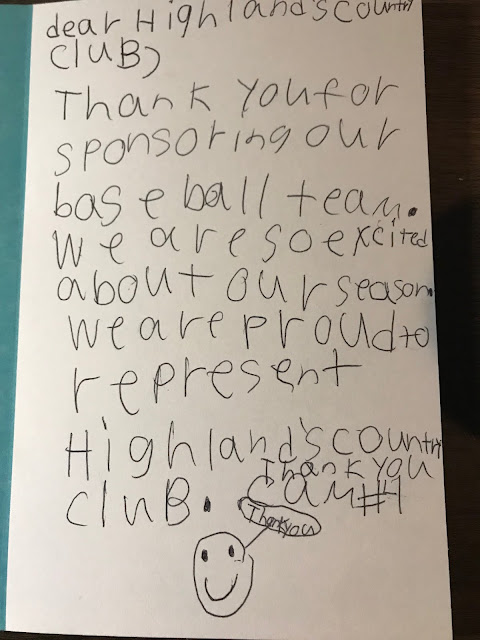 dear Highland's country
CluB,
Thank you for
sponsoring our
baseball team.
We are so excited
about our season.
we are proud to
represent
Highland's country
CluB.
Thank you
Cam #1
Thank you